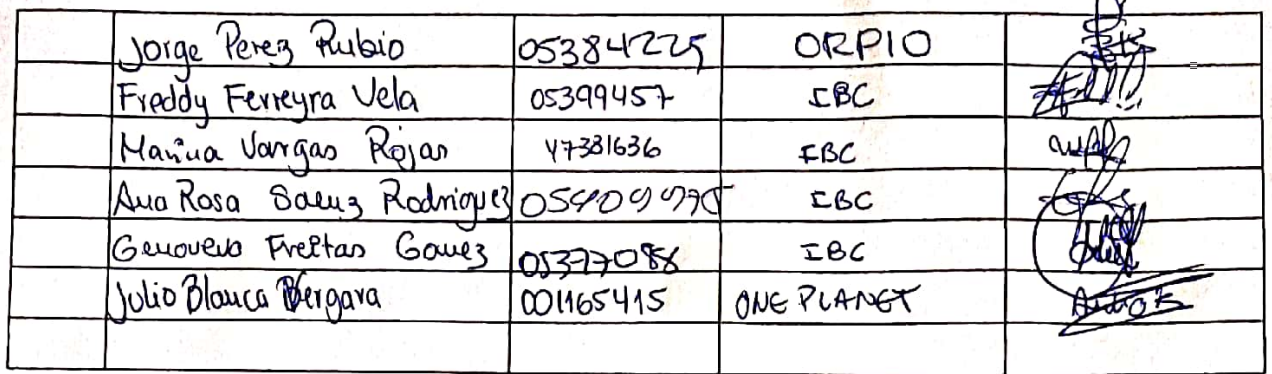 Jorge Perez Rubio 05384225 ORPIO
Freddy Ferreyra Vela 05399457 IBC
Marina Vargas Rojas 47381636 IBC
Ana Rosa Saenz Rodriguez IBC
Genoveva Freitas Gomez 05377086 IBC
Julio Blanca Vergara 001165415 ONE PLANET